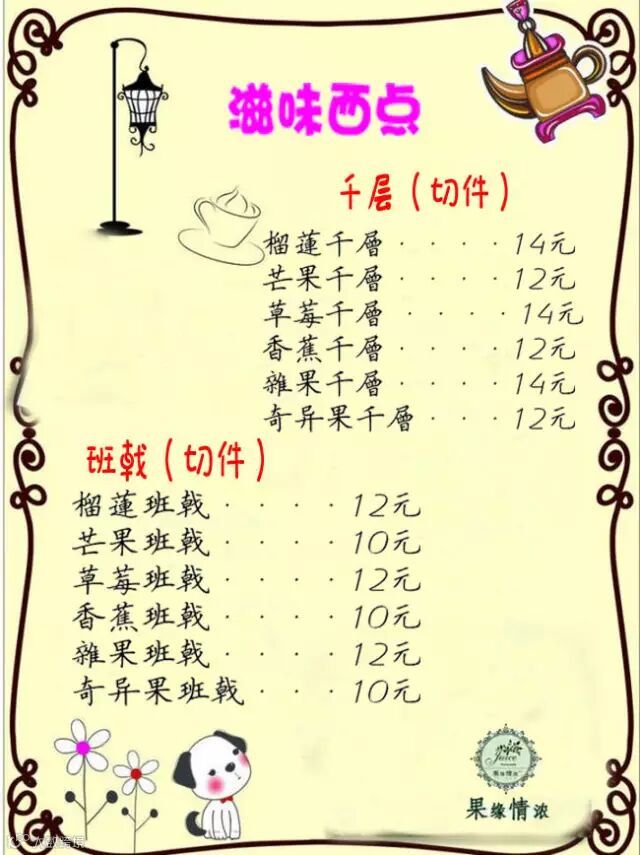 滋味西点
千层（切件）
榴蓮千層····14元
芒果千層····12元
草莓千層····14元
香蕉千層····12元
雜果千層····14元
奇异果千層···12元
班戟（切件）
榴蓮班戟····12元
芒果班戟····10元
草莓班戟····12元
香蕉班戟····10元
雜果班戟····12元
奇异果班戟···10元
Juice
果缘情浓
果缘情浓